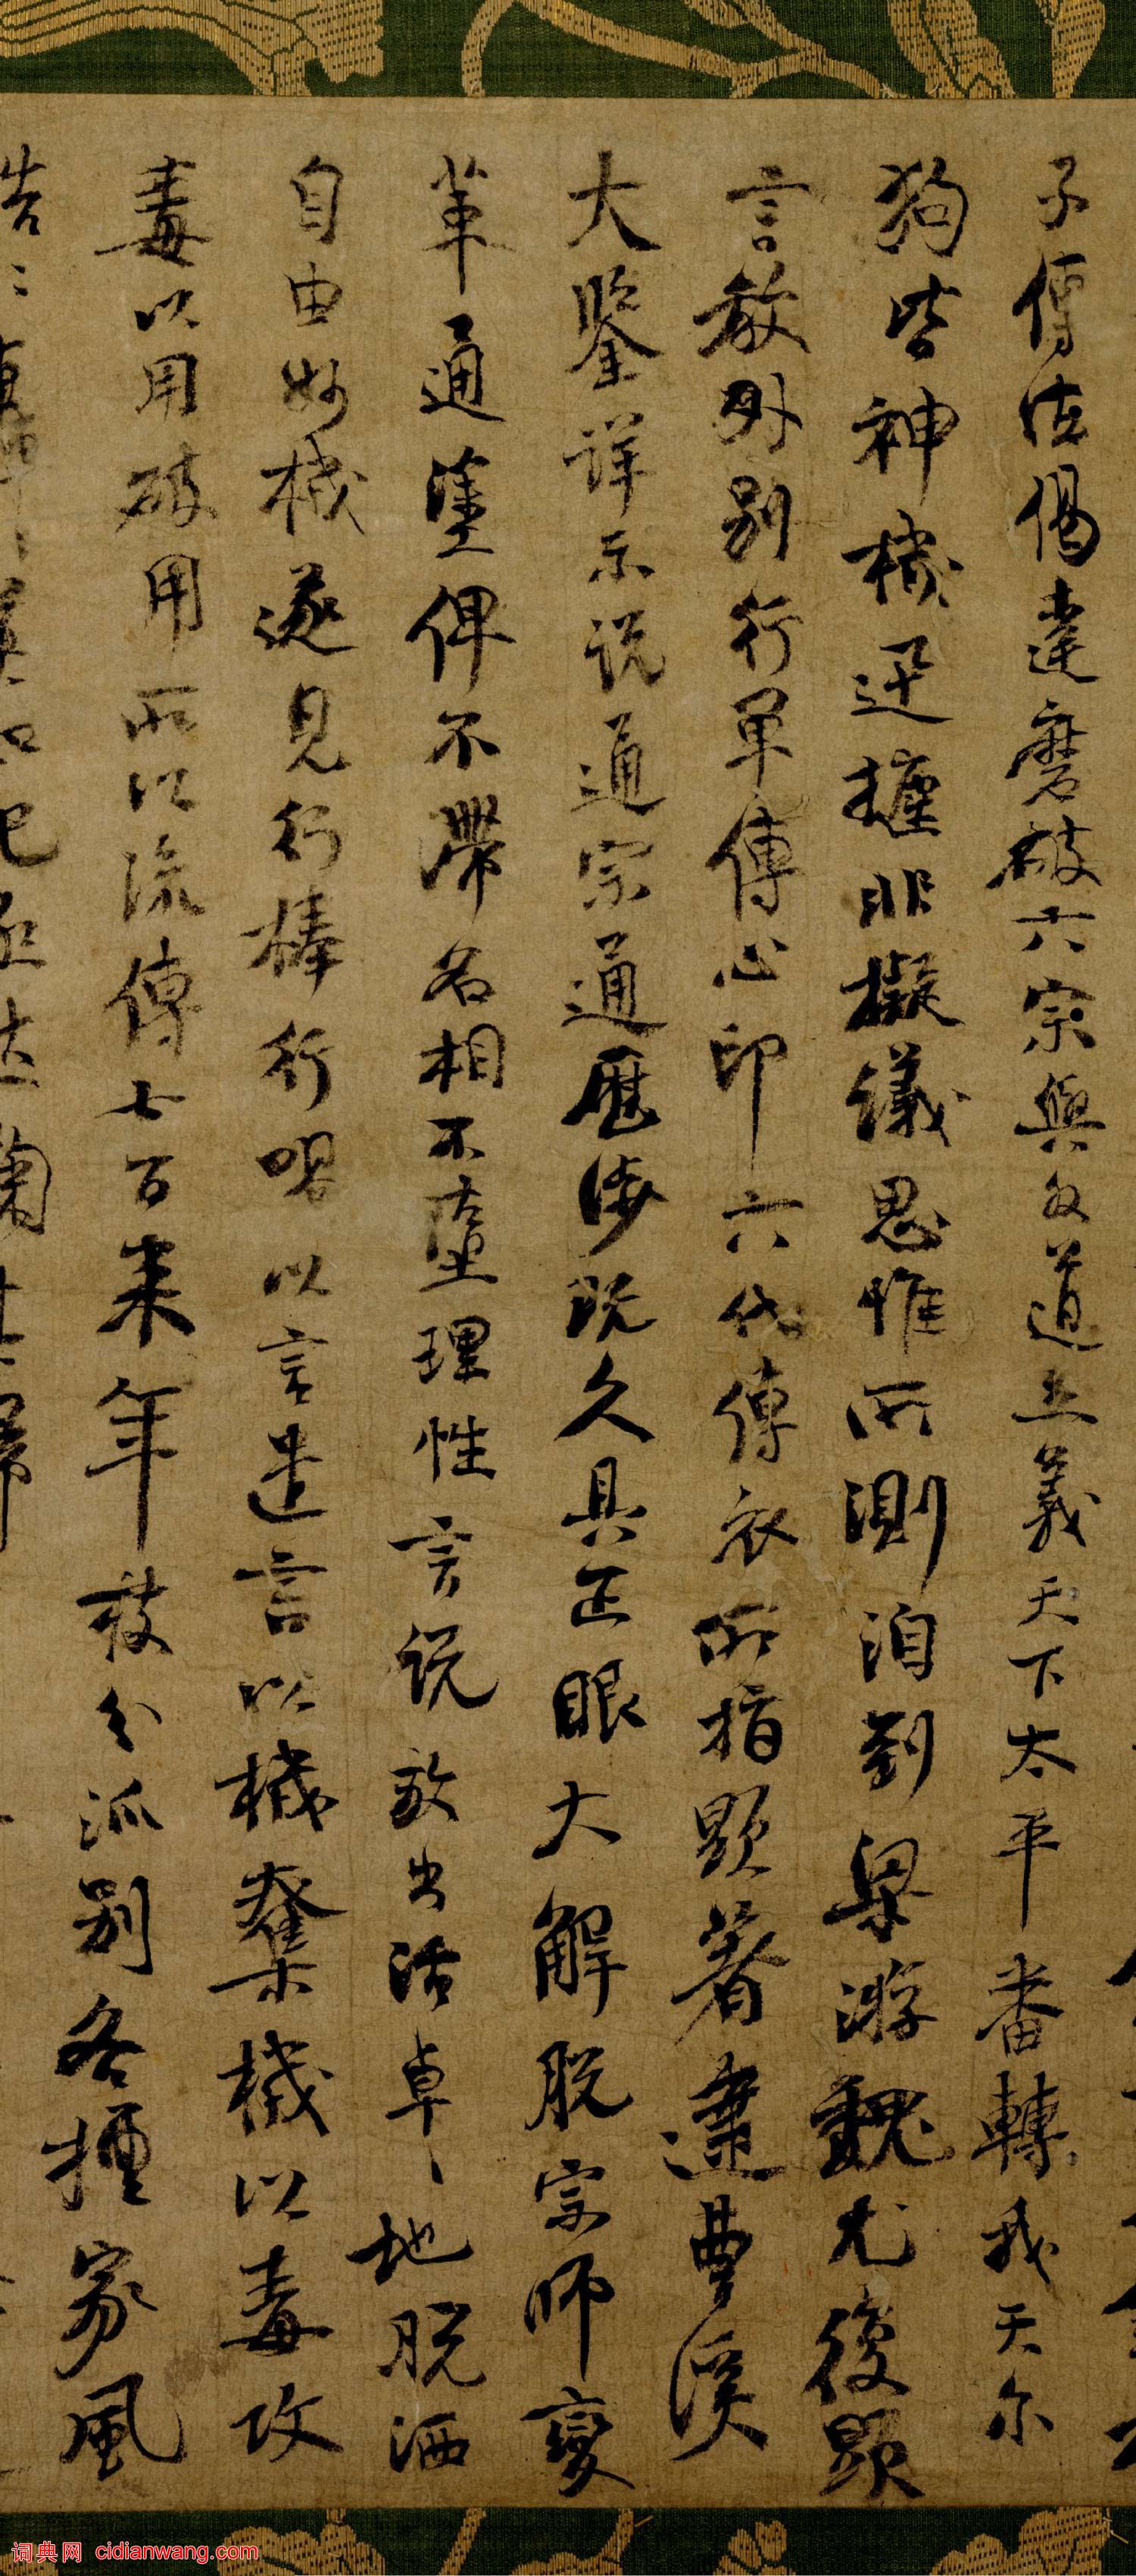 子傳法偈達磨破六宗與外道立義天下太平番轉我天尔
狗皆神機迅捷非擬議思惟所測洎到梁游魏尤復顯
言教外別行單傳心印六代傳衣所指顯著逮曹溪
大鑒詳示說通宗通歷涉既久具正眼大解脫宗師變
革通塗俾不滯名相不墮理性言說放出活卓卓地脫洒
自由妙機遂見行棒行喝以言遣言以機奪機以毒攻
毒以用破用所以流傳七百來年枝分派別各擅家風
浩浩轟轟莫知紀極然鞠其歸
词典网 cidianwang.com